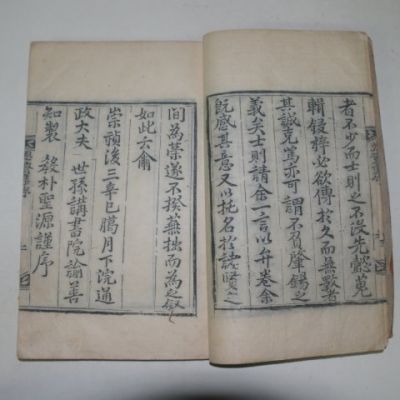 者不少而士則之不沒先懿蒐
輯鋟梓必欲傳於久而無斁者
其誠克篤亦可謂不負肇錫之
義矣士則請余一言以弁卷余
旣感甚意又以托名於諸賢之
間爲榮遂不揆蕪拙而爲之叙
如此云爾
崇禎後三辛巳臘月下浣通
政大夫 世孫講書院諭善
知製 敎朴聖源謹序